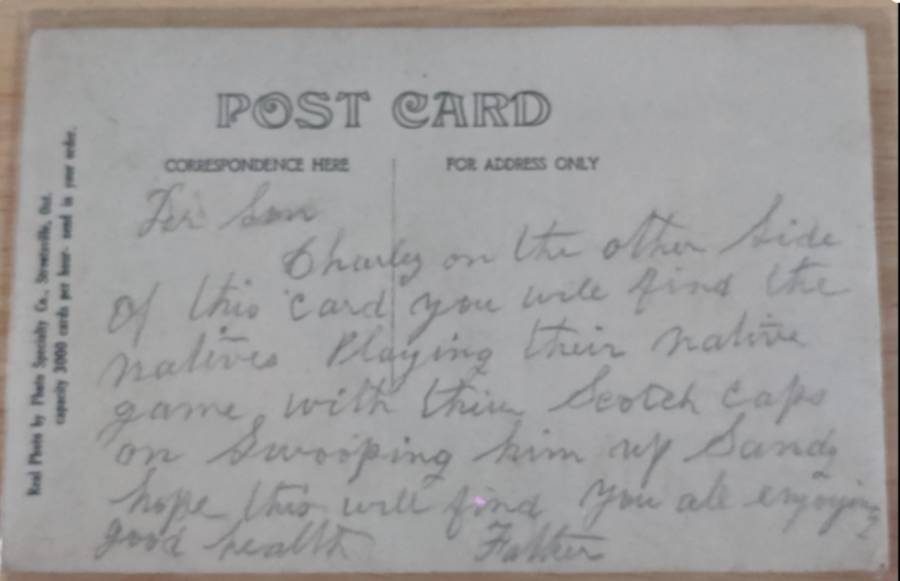 POST CARD
CORRESPONDENCE HERE
FOR ADDRESS ONLY
Der Son
Charley on the other side
of this card you will find the
natives Playing their native
game with thier Scotch caps
on Swooping him up Sandy
hope this will find you all enjoying
good health Father
Real Photo by Photo Specialty Co., Streetsville, Ont.
capacity 3000 cards per hour- send in your order.